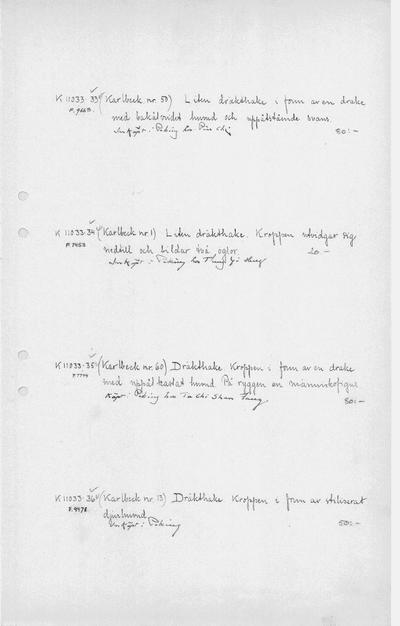 K 11033-33 (Karlbeck nr. 50) Liten dräkthake i form av en drake
P. 9663. med bakåtvridet huvud och uppåtstående svans.
Inköpt i Peking hos Pin Chi 80:-
K 11033-34 (Karlbeck nr 1) Liten dräkthake. Kroppen utvidgar sig
P. 7453 nedtill och bildar två öglor. 20.-
Inköpt i Peking hos
K 11033-35 (Karlbeck nr. 60) Dräkthake. Kroppen i form av en drake
P. 7774 med uppåt kastat huvud. På ryggen en människofigur
Köpt i Peking hos Ta Chi Shan Fang 80:-
K 11033-36 (Karlbeck nr. 13) Dräkthake Kroppen i form av stiliserat
P. 9478 djurhuvud
Inköpt i Peking 50:-